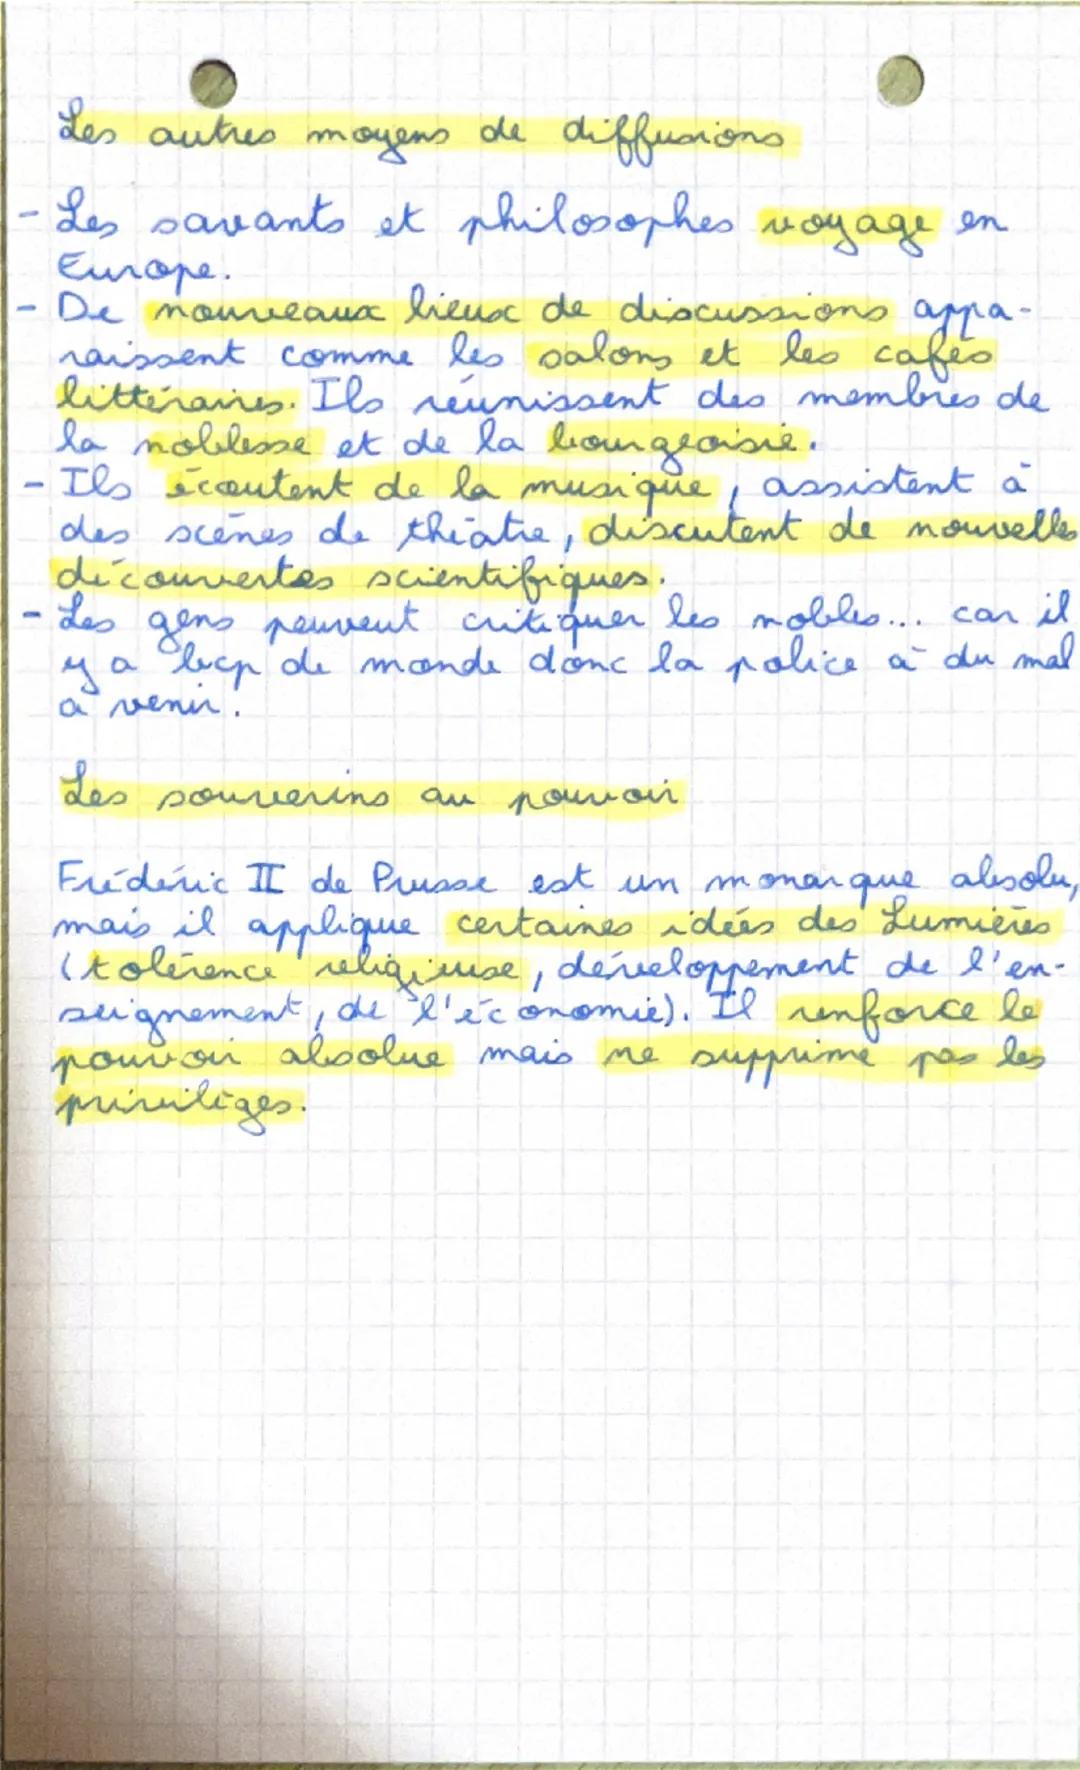 Les autres moyens de diffusions
- Les savants et philosophes voyage en
Europe.
- De nouveaux lieux de discussions appa-
raissent comme les salons et les cafés
littéraires. Ils réunissent des membres de
la noblesse et de la bourgeoisie.
- Ils écoutent de la musique, assistent à
des scènes de théâtre, discutent de nouvelles
découvertes scientifiques.
- Les gens peuvent critiquer les nobles... car il
y a bcp de monde donc la police à du mal
à venir.
Les souverins au pouvoir
Frédéric II de Prusse est un monarque absolu,
mais il applique certaines idées des Lumières
(tolérence religieuse, déreloppement de l'en-
seignement, de l'économie). Il renforce le
pouvoir absolue mais ne supprime pas les
privilèges.